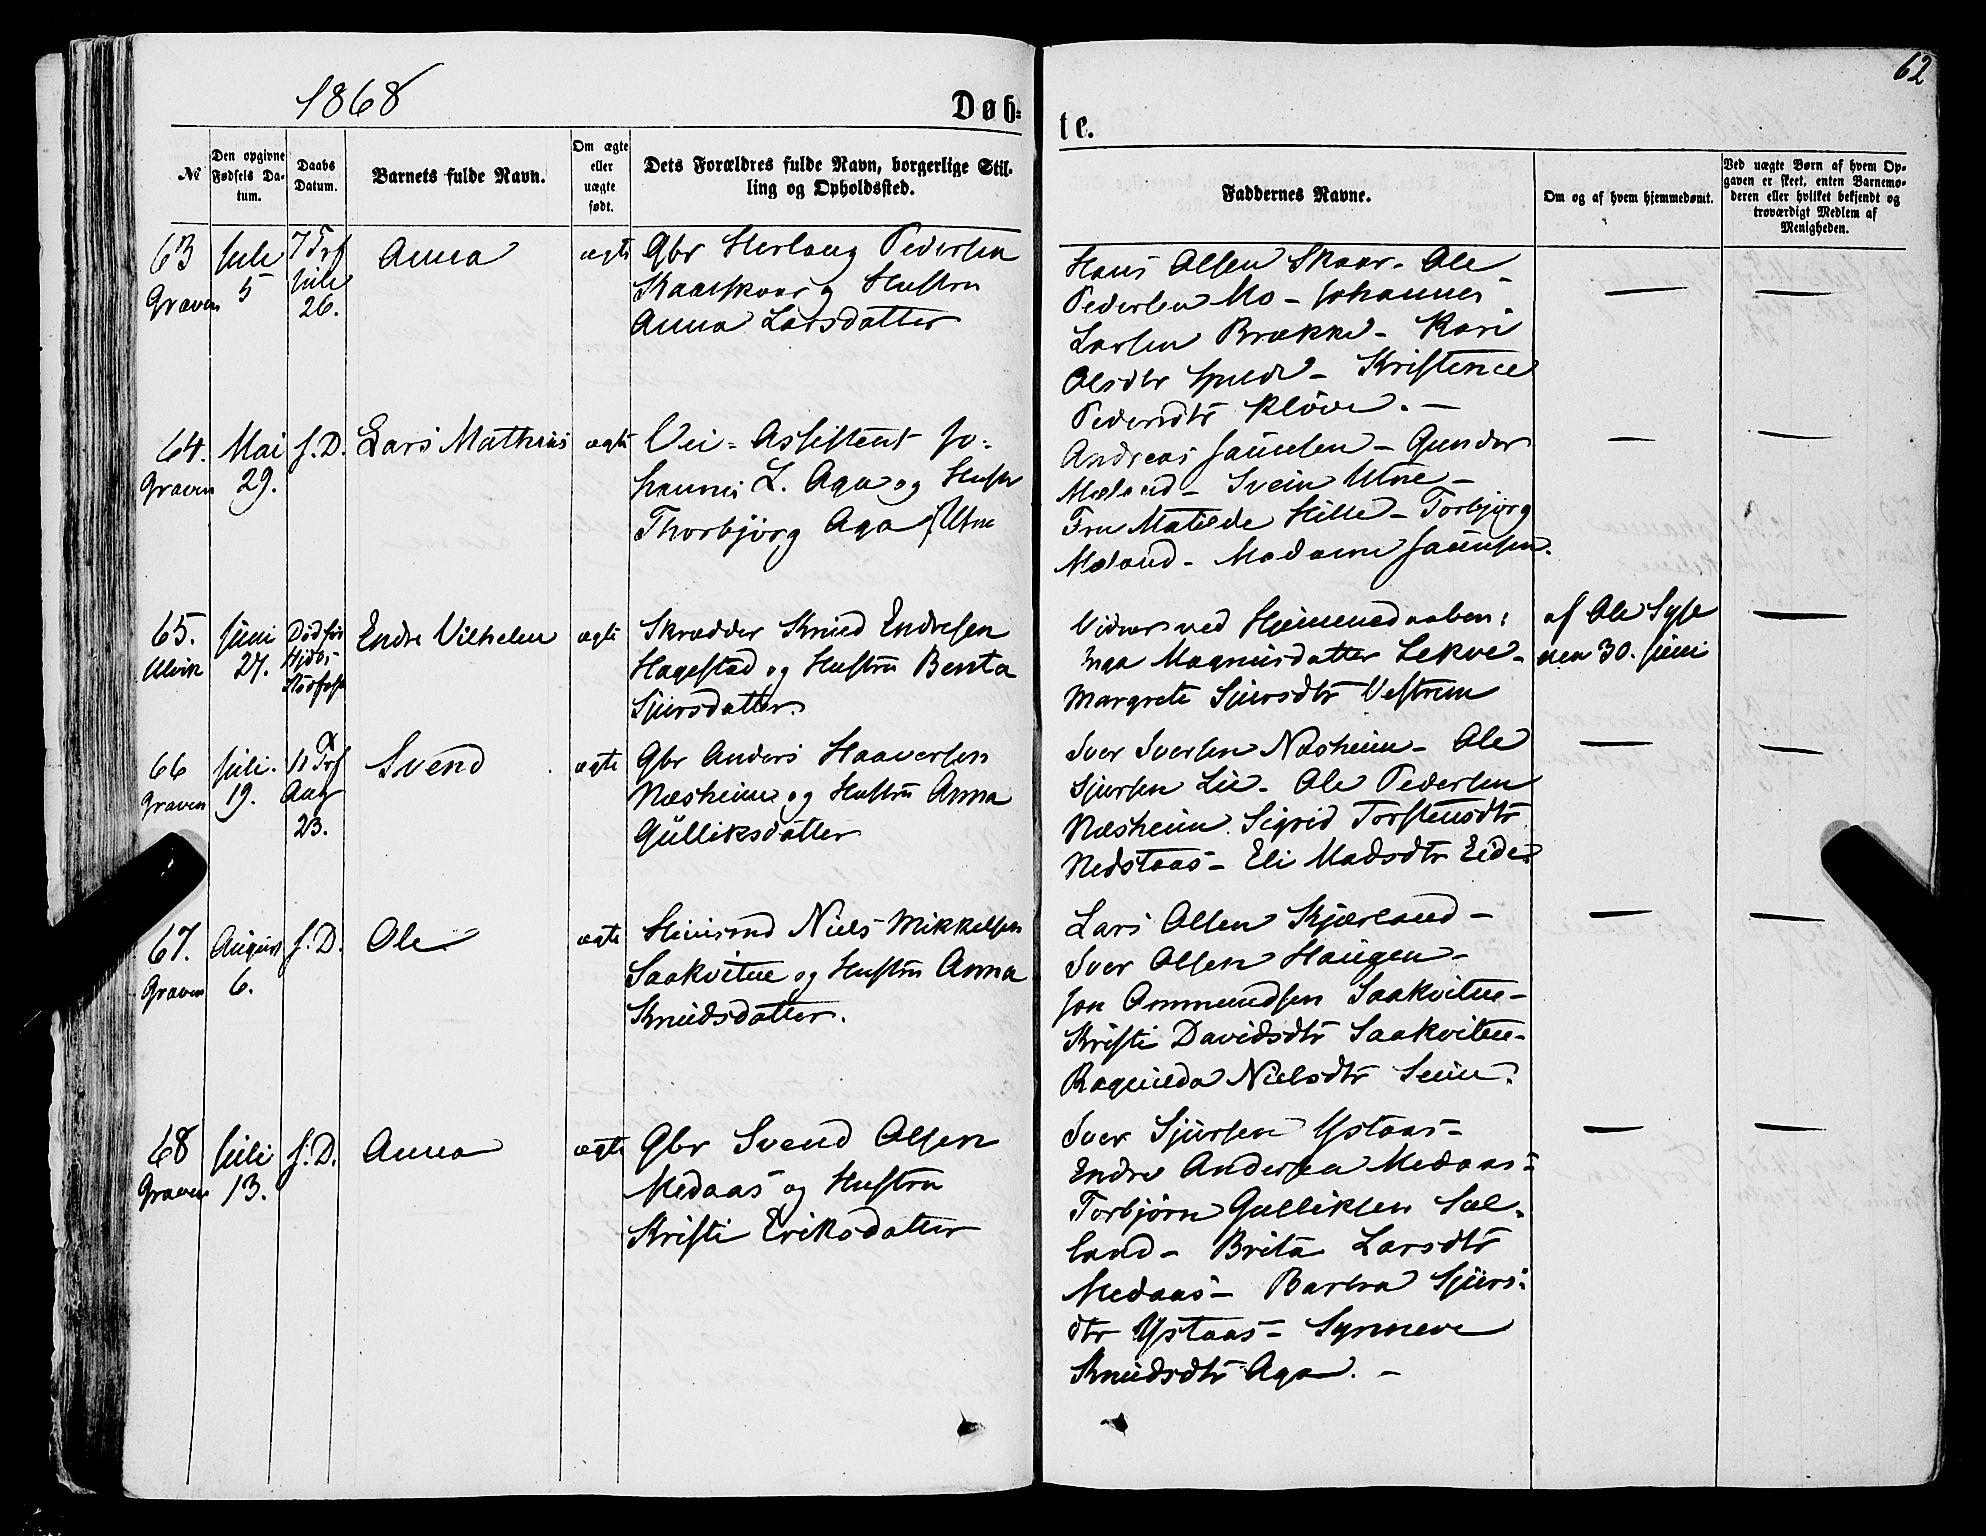 1868
Døb-
te.
62
№
Den opgivne Fødsels Datum.
Daabs Datum.
Barnets fulde Navn.
Om ægte eller uægte født.
Dets Forældres fulde Navn, borgerlige Stilling og Opholdssted.
Faddernes Navne.
Om og af hvem hjemmedøbt.
Ved uægte Børn af hvem Opgaven er skeet, enten Barnemoderen eller hvilket bekjendt og troværdigt Medlem af Menigheden.
63
Graven
Juli
5
7 Trf
Juli
26.
Anna
ægte
Gbr Herlaug Pedersen
Skaarskaar og Hustru
Anna Larsdatter
Hans Olsen Skaar - Ole
Pedersen Mo - Johannes
Larsen Brække - Kari
Olsdtr Spilde - Kristence
Pedersdtr Kløve. -
—
—
64.
Graven
Mai
29.
s. D.
Lars Mathias
ægte
Vei-Assistent Jo-
hannes L. Aga og Hustr
Thorbjørg Aga f. Utne
Andreas Jaunsen - Gunder
Mæland - Svein Utne -
Fru Matilde Hille - Torbjørg
Mæland - Madame Jaunsen.
—
—
65.
Ulvik
Juni
27.
Endre Vilhelm
ægte
Skrædder Knud Endresen
Hagestad og Hustru Benta
Sjursdatter.
Vidner ved Hjemmedaaben:
Inga Magnusdatter Lekve -
Margrete Sjursdtr Vestrem
af Ole Syse
den 30. Juni
—
66
Graven
Juli.
19.
11 Trf
Aug
23.
Svend
ægte
Gbr Anders Haaversen
Næsheim og Hustru Anna
Gulliksdatter
Iver Iversen Næsheim - Ole
Sjursen Lie - Ole Pedersen
Næsheim. Sigrid Torstensdtr
Nedstaas - Eli Madsdtr Eide.
—
—
67.
Graven
August
6.
s. D.
Ole
ægte
Huusmd Niels Mikkelsen
Saakvitne og Hustru Anna
Knudsdatter.
Lars Olsen Kjærland -
Iver Olsen Haugen -
Jon Ommundsen Saakvitne -
Kristi Davidsdtr Saakvitne -
Ragnilda Nielsdtr Seim.
—
—
68
Graven
Juli
13.
s. D.
Anna
ægte
Gbr Svend Olsen
Medaas og Hustru
Kristi Eriksdatter
Iver Sjursen Ystaas -
Endre Andersen Medaas -
Torbjørn Gulliksen Sæl-
land - Brita Larsdtr
Medaas - Barbra Sjurs-
dtr Ystaas - Synneve
Knudsdtr Aga. -
—
—